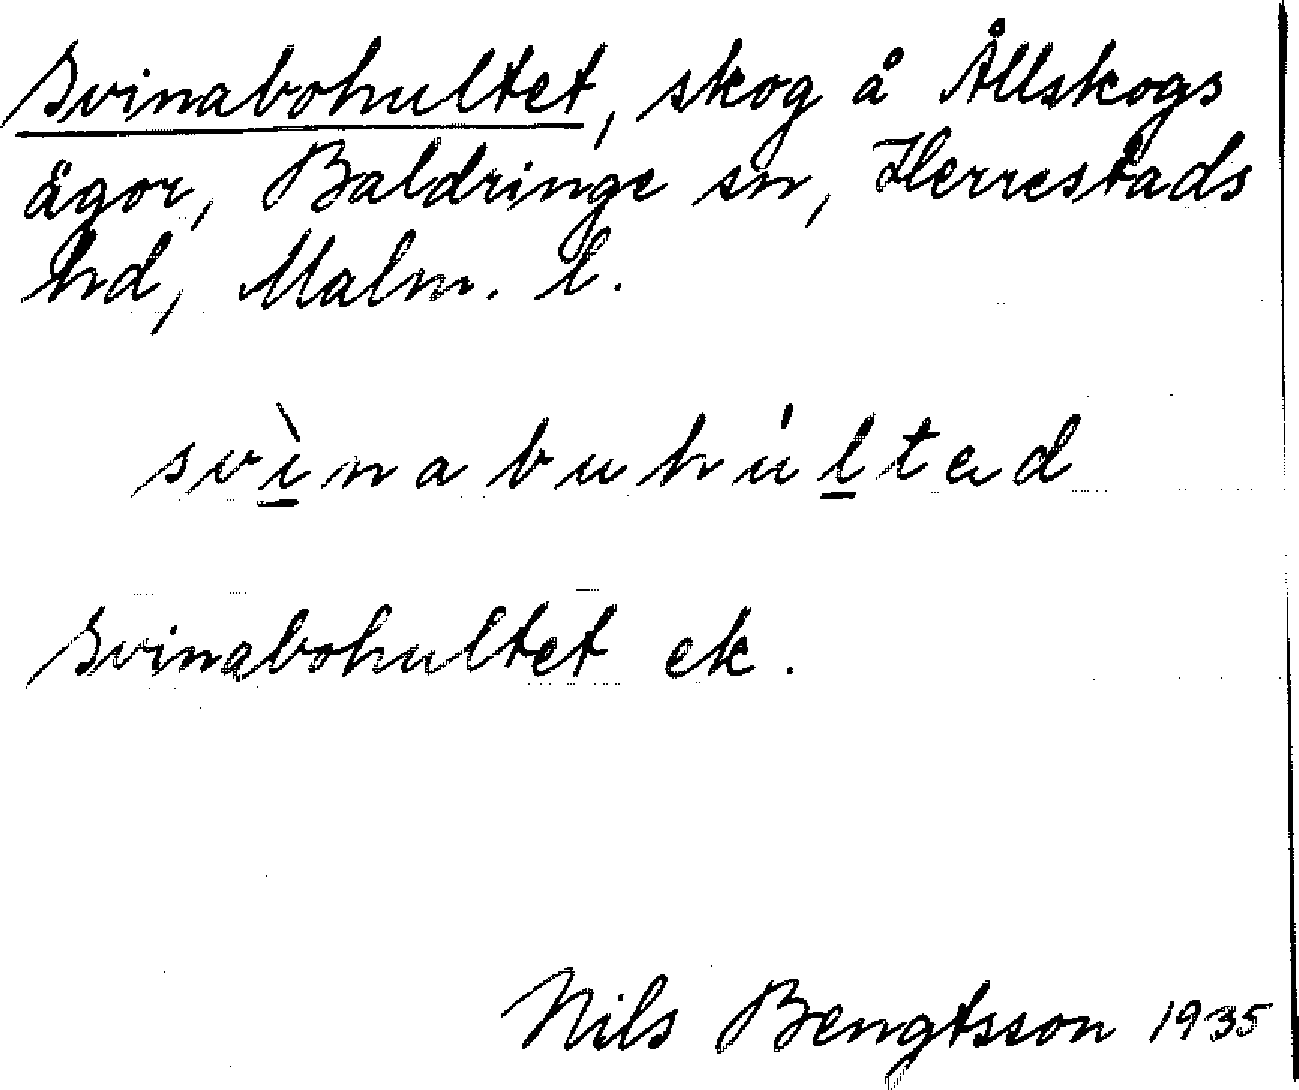 Svinabohultet, skog å Ållskogs
ägor, Baldringe sn, Herrestads
hd, Malm. l.
svìnabuhúltəd
Svinabohultet ek.
Nils Bengtsson 1935